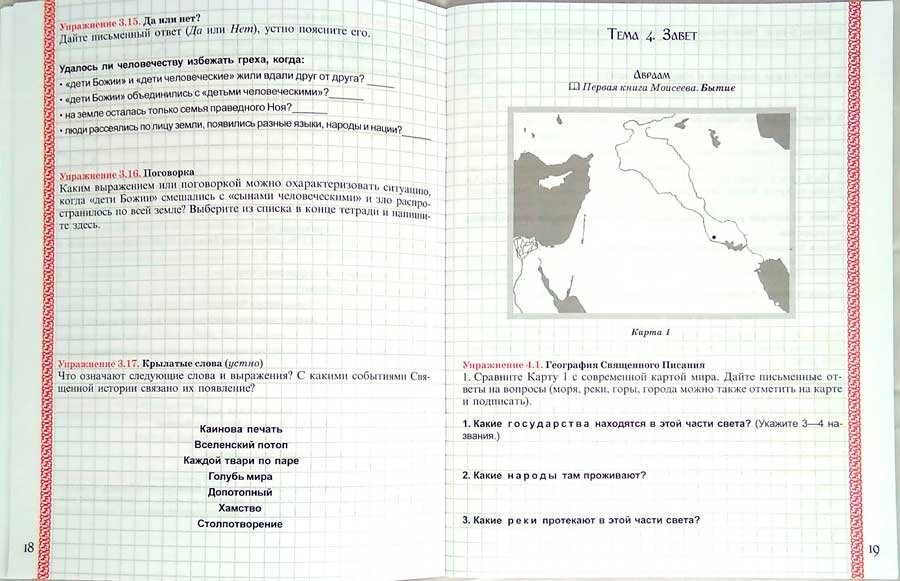 Упражнение 3.15. Да или нет?
Дайте письменный ответ (Да или Нет), устно поясните его.
Удалось ли человечеству избежать греха, когда:
• «дети Божии» и «дети человеческие» жили вдали друг от друга?_____
• «дети Божии» объединились с «детьми человеческими»?______
• на земле осталась только семья праведного Ноя?______
• люди рассеялись по лицу земли, появились разные языки, народы и нации?_____
Упражнение 3.16. Поговорка
Каким выражением или поговоркой можно охарактеризовать ситуацию,
когда «дети Божии» смешались с «сынами человеческими» и зло распро-
странилось по всей земле? Выберите из списка в конце тетради и напиши-
те здесь.
Упражнение 3.17. Крылатые слова (устно)
Что означают следующие слова и выражения? С какими событиями Свя-
щенной истории связано их появление?
Каинова печать
Вселенский потоп
Каждой твари по паре
Голубь мира
Допотопный
Хамство
Столпотворение
18
Тема 4. Завет
Авраам
Первая книга Моисеева. Бытие
Карта 1
Упражнение 4.1. География Священного Писания
1. Сравните Карту 1 с современной картой мира. Дайте письменные от-
веты на вопросы (моря, реки, горы, города можно также отметить на карте
и подписать).
1. Какие государства находятся в этой части света? (Укажите 3—4 на-
звания.)
2. Какие народы там проживают?
3. Какие реки протекают в этой части света?
19